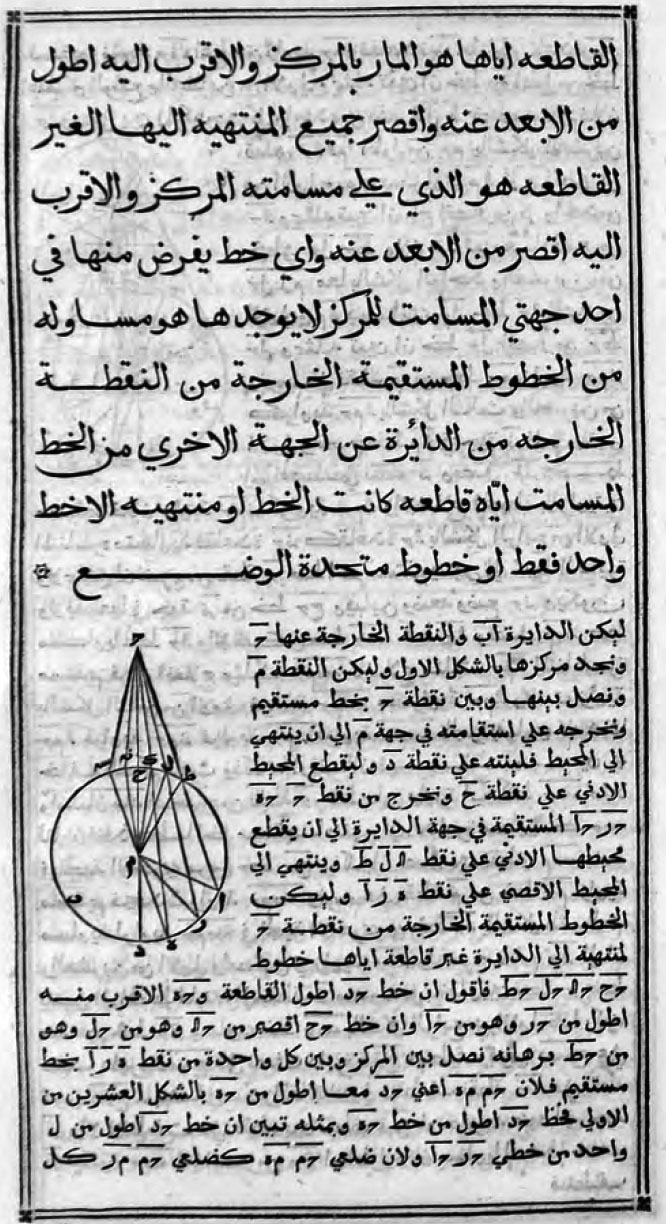 القاطعه اياها هو المار بالمركز والاقرب اليه اطول
من الابعد عنه واقصر جميع المنتهيه اليها الغير
القاطعه هو الذي علي مسامته المركز والاقرب
اليه اقصر من الابعد عنه واي خط يفرض منها في
احد جهتي المسامت للمركز لا يوجد ها هو مساو له
من الخطوط المستقيمة الخارجة من النقطة
الخارجه من الدائرة عن الجهة الاخري من الخط
المسامت اياه قاطعه كانت الخط او منتهيه الا خط
واحد فقط او خطوط متحدة الوضع
ليكن الدايرة اب والنقطة الخارجة عنها ح
ونجد مركزها بالشكل الاول وليكن النقطة م
ونصل بينها وبين نقطة ح بخط مستقيم
ونخرجه علي استقامته في جهة م الي ان ينتهي
الي المحيط فلينته علي نقطة د وليقطع المحيط
الادني علي نقطة ح ونخرج من نقط ح حه
حر حا المستقيمة في جهة الدايرة الي ان يقطع
محيطها الادني علي نقط ك ل ط وينتهي الي
المحيط الاقصي علي نقط ه ر ا وليكن
الخطوط المستقيمة الخارجة من نقطة ح
لمنتهية الي الدايرة غير قاطعة اياها خطوط
حح حك حل حط فاقول ان خط حد اطول القاطعة وحه الاقرب منه
اطول من حر وهو من حا وان خط حح اقصر من حك وهو من حل وهو
من حط برهانه نصل بين المركز وبين كل واحدة من نقط ه ر ا بخط
مستقيم فلان حم مه اعني حد معا اطول من حه بالشكل العشرين من
الاولي فخط حد اطول من خط حه وبمثله تبين ان خط حد اطول من ل
واحد من خطي حر حا ولان ضلعي حم مه كضلعي حم مر كل